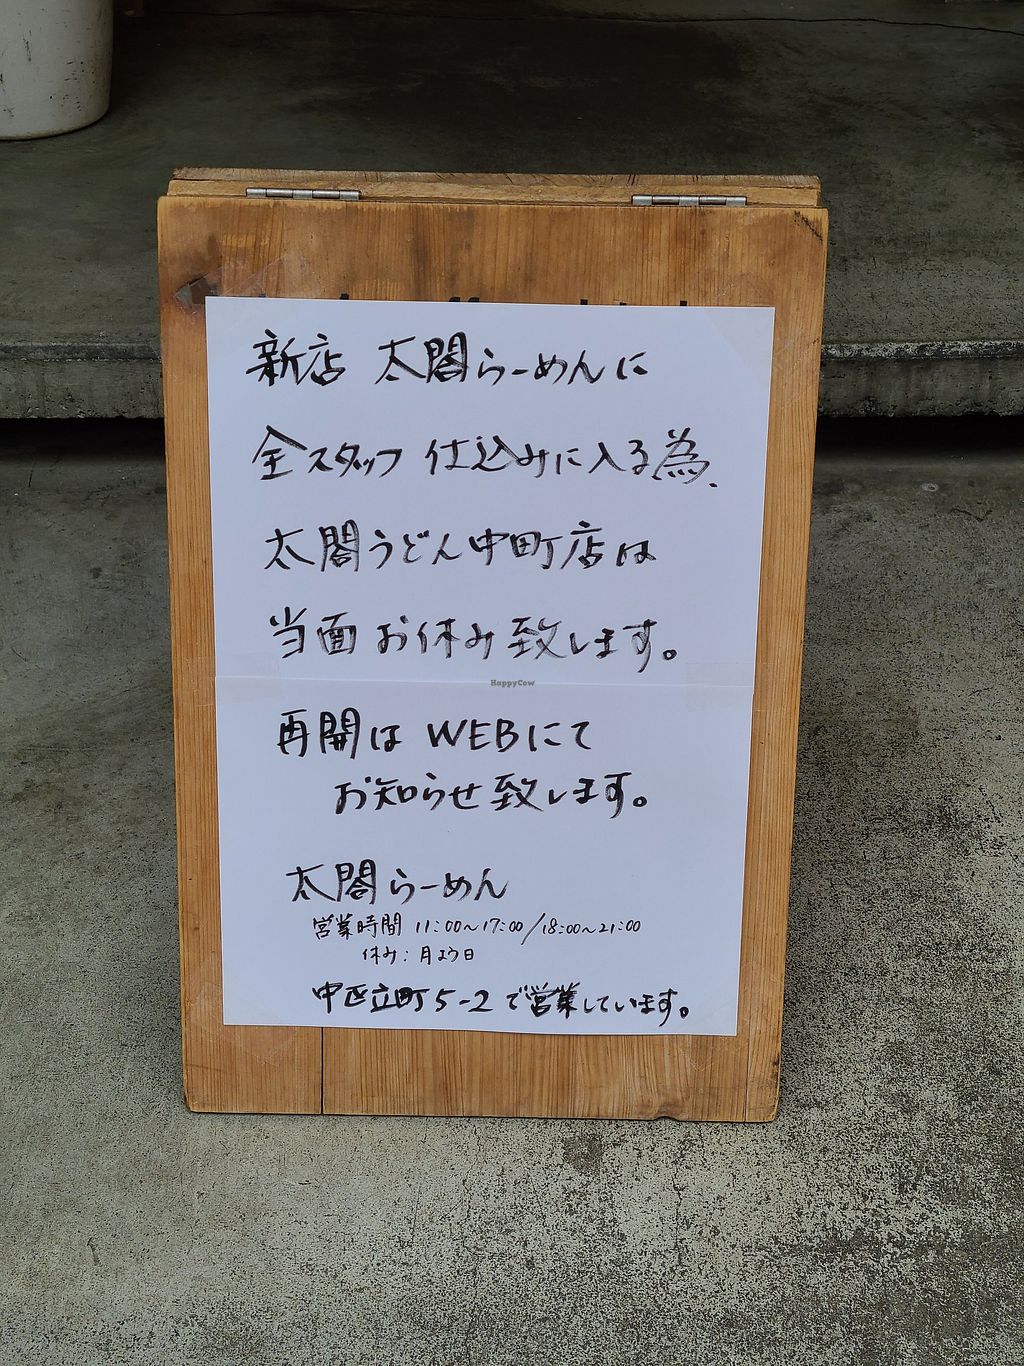 新店 太閤らーめんに
全スタッフ 仕込みに入る為、
太閤うどん中町店は
当面 お休み致します。
HappyCow
再開は WEBにて
お知らせ致します。
太閤らーめん
営業時間 11:00〜17:00/18:00〜21:00
休み:月よう日
中区立町5-2で営業しています。